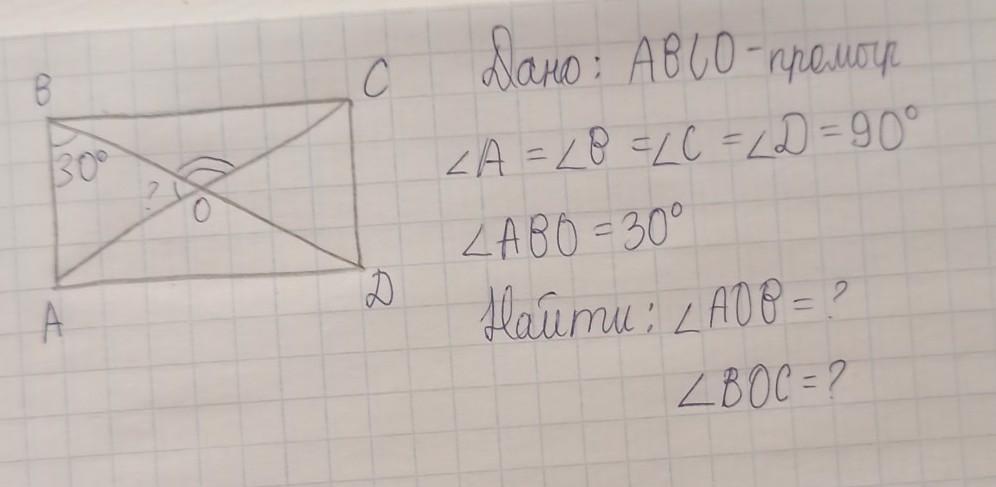 B
C
30°
?
O
A
D
Дано: ABCD - прямоуг
∠A = ∠B = ∠C = ∠D = 90°
∠ABO = 30°
Найти: ∠AOB = ?
∠BOC = ?